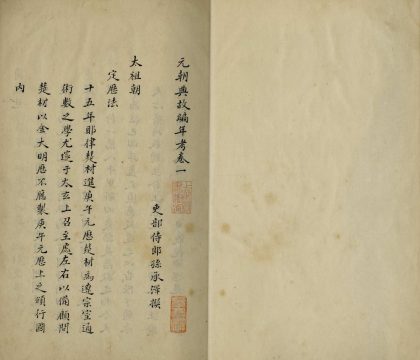 元朝典故編年考卷一
吏部侍郎孫承澤撰
太祖朝
定曆法
十五年耶律楚材進庚午元曆楚材為遼宗室通
術數之學尤邃于太玄上召至處左右以備顧問
楚材以金大明曆不應製庚午元曆上之頒行國
内